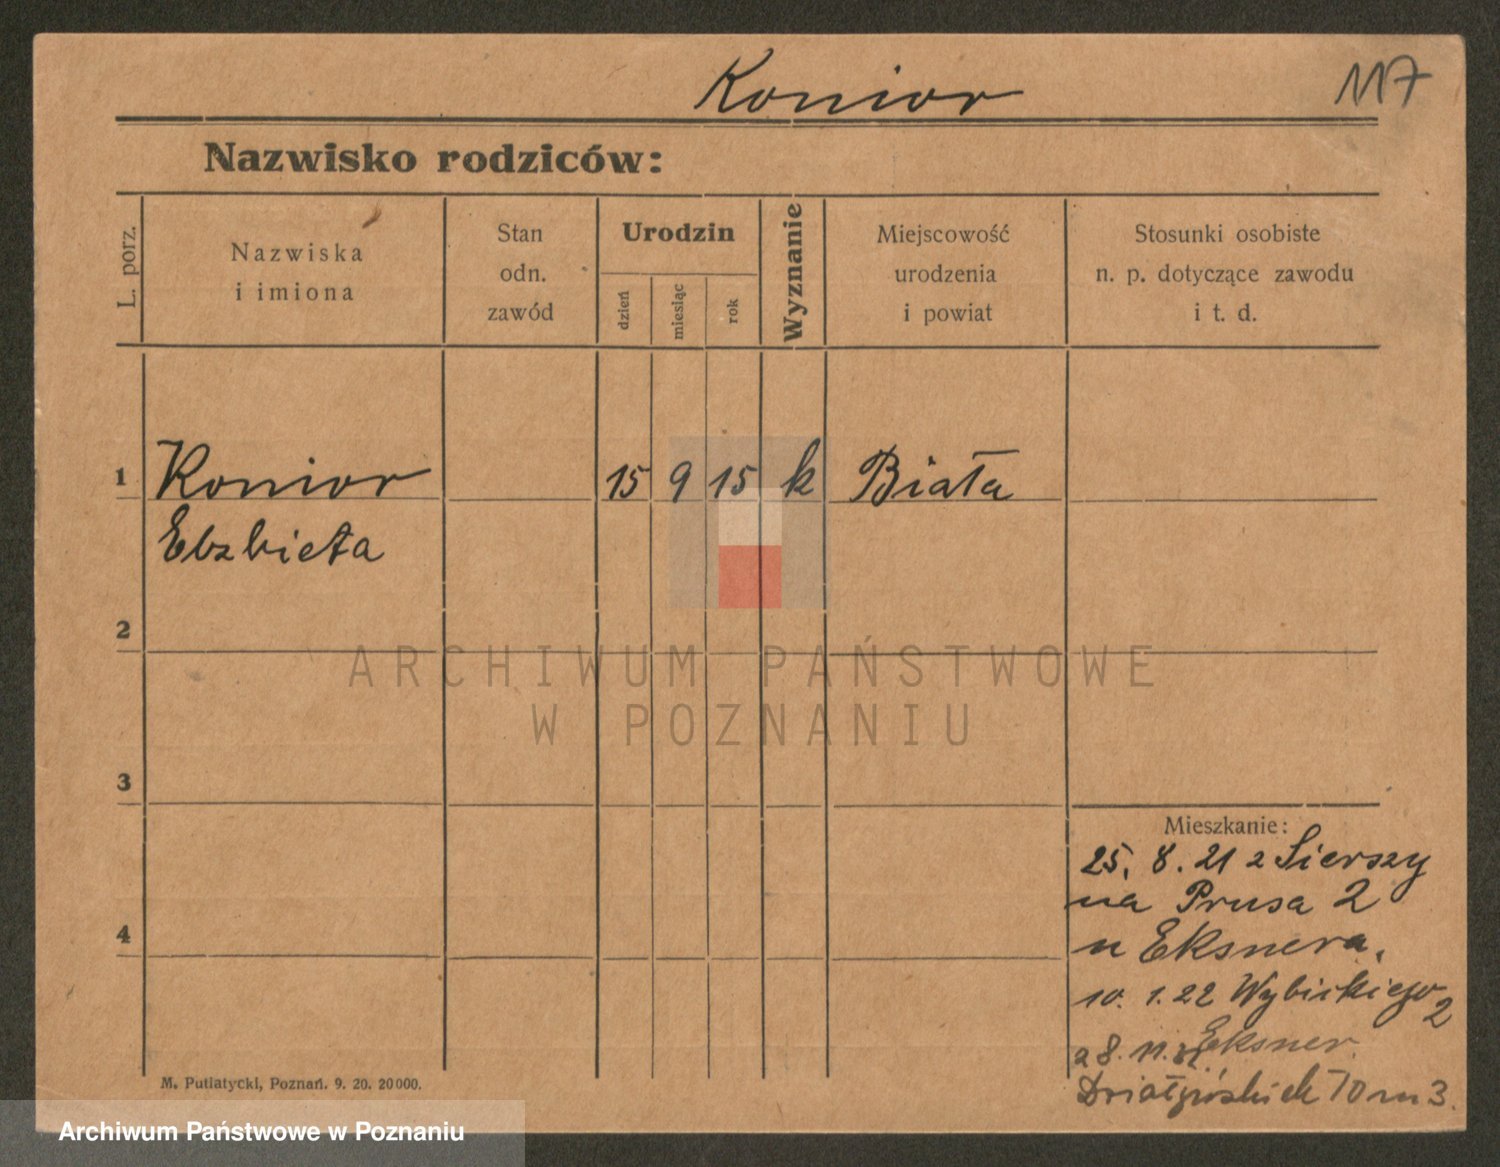 Konior
117
Nazwisko rodziców:
L. porz.
Nazwiska
i imiona
Stan
odn.
zawód
Urodzin
dzień
miesiąc
rok
Wyznanie
Miejscowość
urodzenia
i powiat
Stosunki osobiste
n. p. dotyczące zawodu
i t. d.
1 Konior 15 9 15 k Biała
Elzbieta
2
3
4
ARCHIWUM PAŃSTWOWE
W POZNANIU
Mieszkanie:
25. 8. 21 z Sierszy
na Prusa 2
u Eksnera.
10. 1. 22 Wybickiego 2
28. 11. Eksner.
70 m 3.
M. Putiatycki, Poznań. 9. 20. 20000.
Archiwum Państwowe w Poznaniu